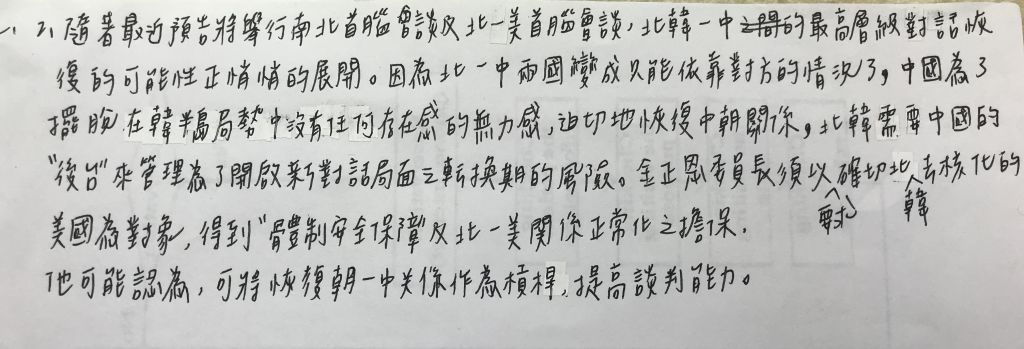 一、2、隨著最近預告將舉行南北首腦會談及北一美首腦會談,北韓一中之間的最高層級對話恢
復的可能性正悄悄的展開。因為北一中兩國變成只能依靠對方的情況了,中國為了
擺脫在韓半島局勢中沒有任何存在感的無力感,迫切地恢復中朝關係,北韓需要中國的
"後台"來管理為了開啟新對話局面之轉換期的風險。金正恩委員長須以確切北去核化的
要求 韓
美國為對象,得到"體制安全保障"及北一美関係正常化之擔保.
他可能認為,可將恢復朝一中关係作為槓桿,提高談判能力。